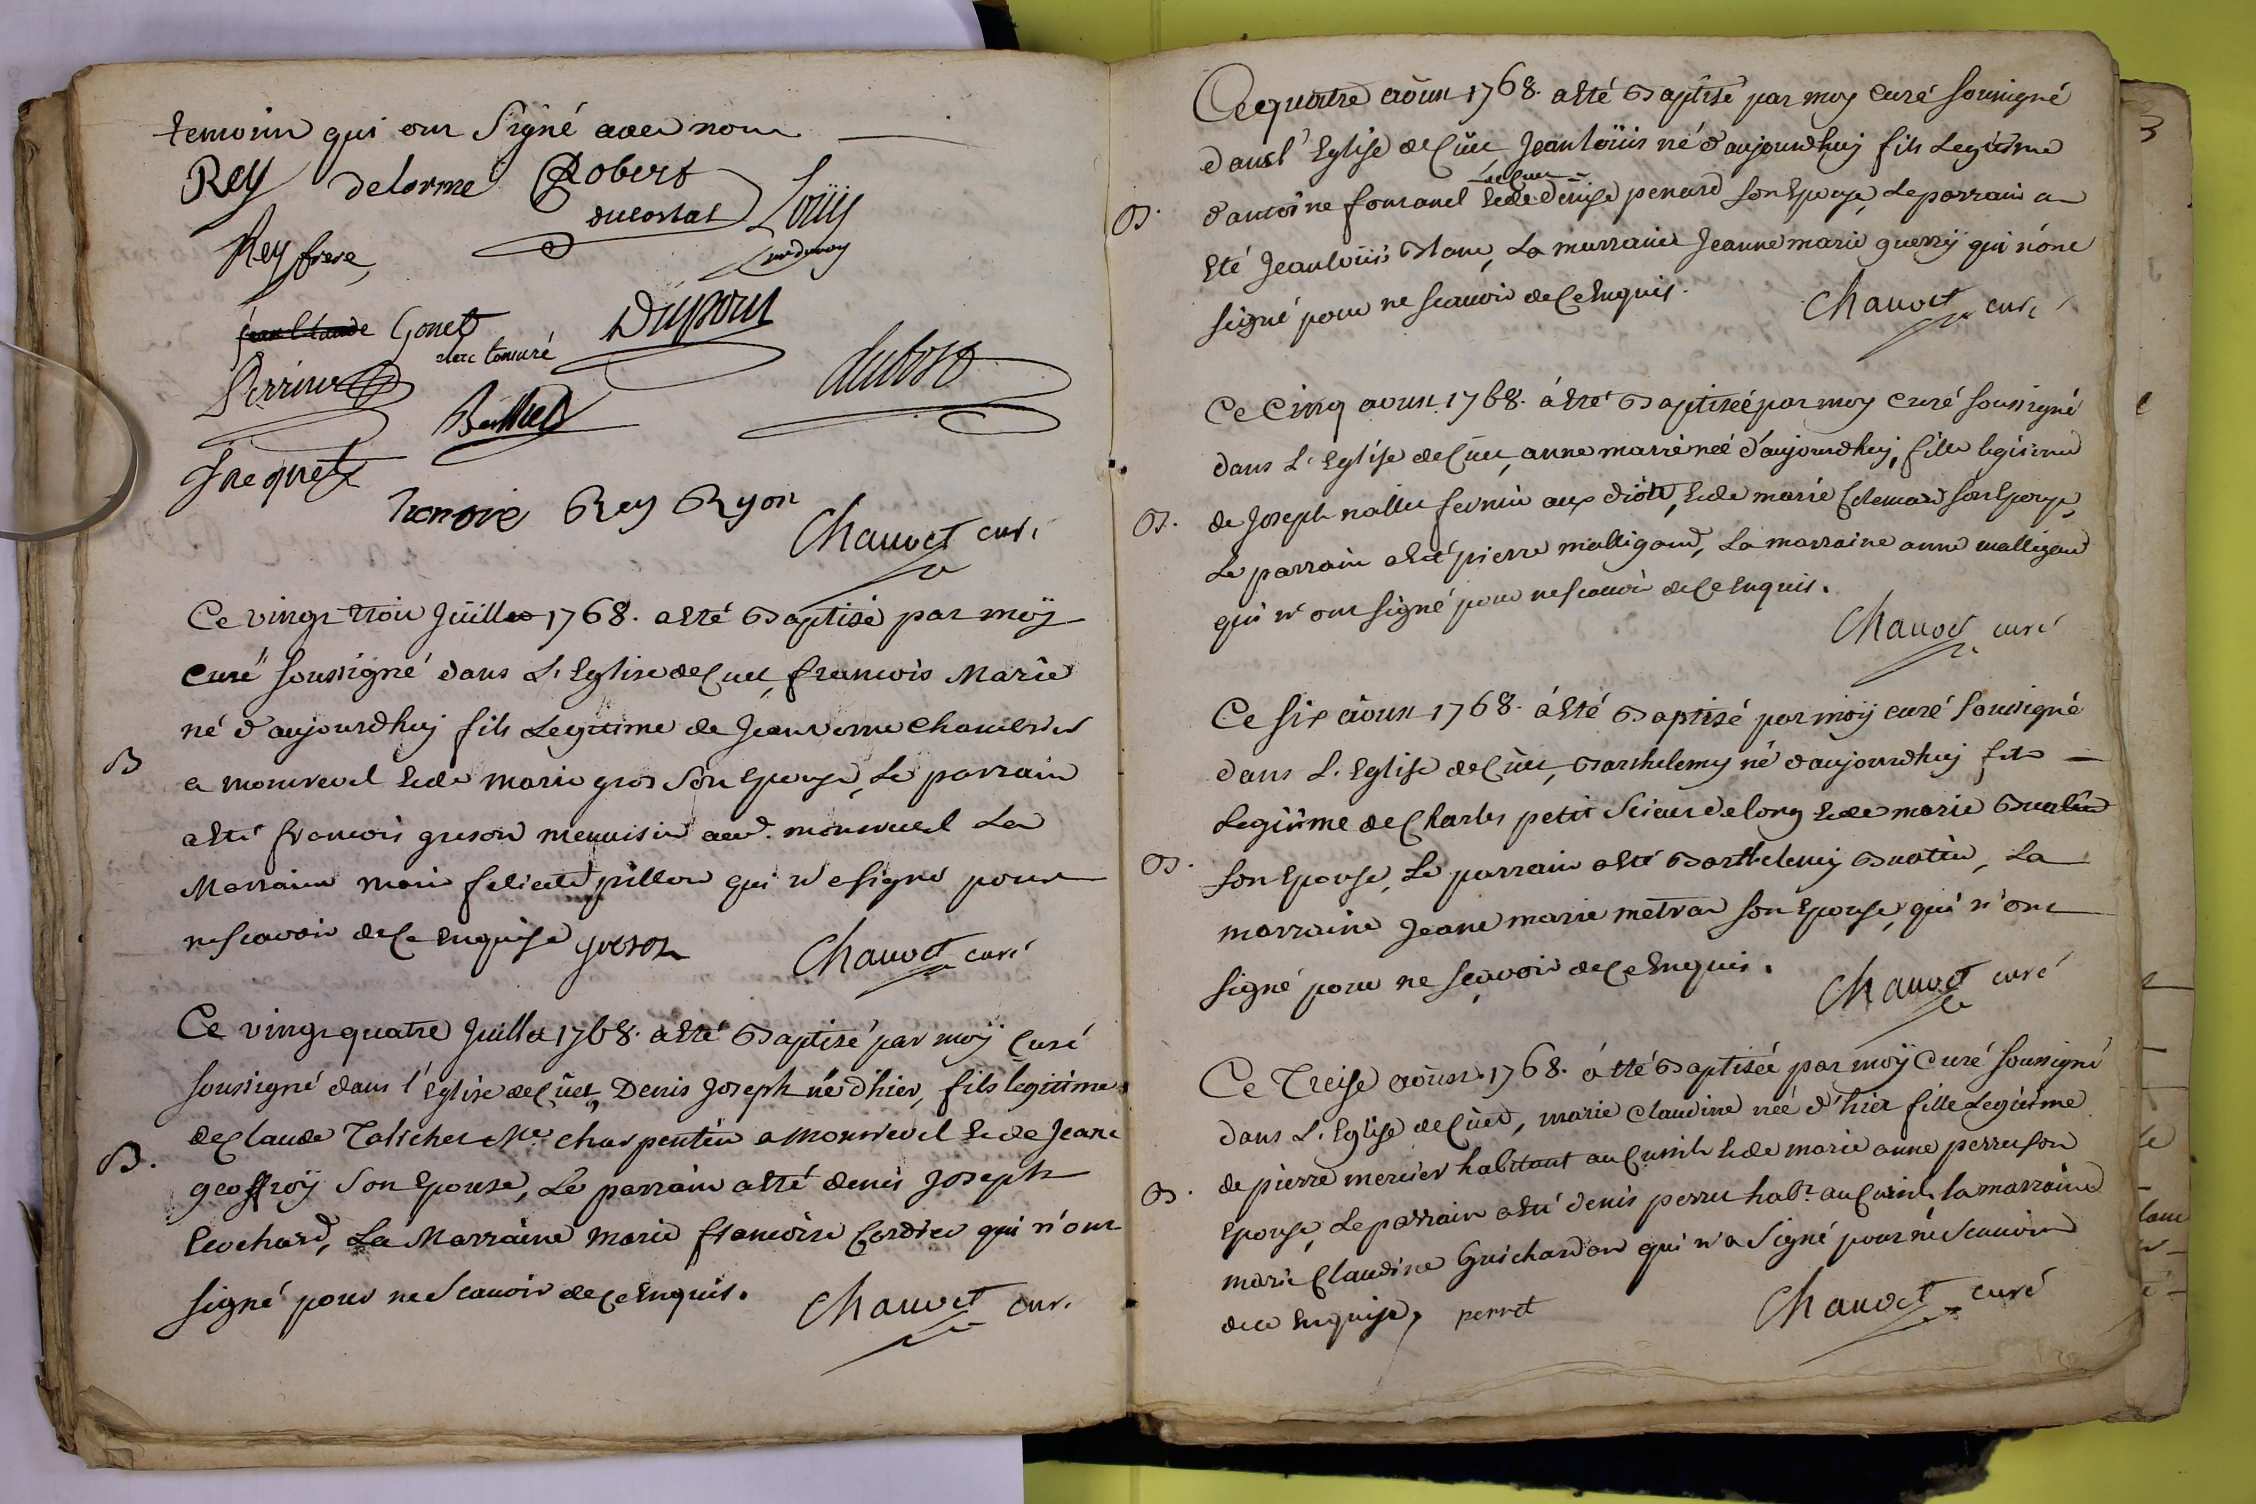 temoins qui ont signé avec nous
Rey delorme Robert
ducostal Loüis
Rey frere
Gonet
clerc tonsuré Dupont
Perrier dubost
Berthet
Jacquet
Renoire Rey Ryon
Chauvet curé
Ce vingt trois Jüillet 1768. a été Baptisé par moÿ
curé soussigné dans L'Eglise de Cüet, francois Marie
né d'aujourdhuy fils Legitime de Jean
a montrevel et de marie gros son Epouse, Le parrain
a été francois greson menuisier aud. montrevel La
Marraine marie felicité pillon qui n'a signé pour
ne scavoir de ce Enquise greson
Chauvet curé
B
Ce vingt quatre Juillet 1768. a été Baptisé par moÿ Curé
soussigné dans l'Eglise de Cüet, Denis Joseph né d'hier, fils legitime
de Claude Me charpentier a Montrevel et de Jeane
geoffroÿ son Epouse, Le parrain a été denis Joseph
La Marraine marie francoise Cordier qui n'ont
signé pour ne Scavoir de ce Enquis.
Chauvet curé
B.
Ce quatre aoust 1768. a été Baptisé par moy Curé soussigné
dans l'Eglise de Cüet Jean loüis né d'aujourdhuy fils Legitime
d'antoine fontanel et de denise penard son Epouse, Le parrain a
Eté Jean loüis Blanc, La marraine Jeanne marie guerrÿ qui n'ont
signé pour ne scavoir de ce Enquis.
Chauvet curé
B.
Ce Cinq aoust 1768. a été Baptisée par moy curé soussigné
dans L'Eglise de Cüet, anne marie née d'aujourdhuy, fille legitime
de Joseph nallet fermier aux diots, et de marie son Epouse,
Le parrain a été pierre malligand, La marraine anne malligand
qui n'ont signé pour ne scavoir de ce Enquis.
Chauvet curé
B.
Ce six aoust 1768. a été Baptisé par moÿ curé soussigné
dans L'Eglise de Cüet, Barthelemy né d'aujourdhuy fils
Legitime de Charles petit scieur de long et de marie Buatin
son Epouse, Le parrain a été Barthelemy Buatin, La
marraine Jeane marie metrat son Epouse, qui n'ont
signé pour ne sçavoir de ce Enquis.
Chauvet curé
B.
Ce Treise aoust 1768. a été Baptisée par moÿ Curé soussigné
dans L'Eglise de Cüet, marie claudine née d'hier fille Legitime
de pierre mercier habitant au Curnil et de marie anne perret son
Epouse, Le parrain a été denis perret habt. au Curnil, la marraine
marie Claudine Guichardon qui n'a signé pour ne scavoir
de ce Enquise, perret
Chauvet curé
B.